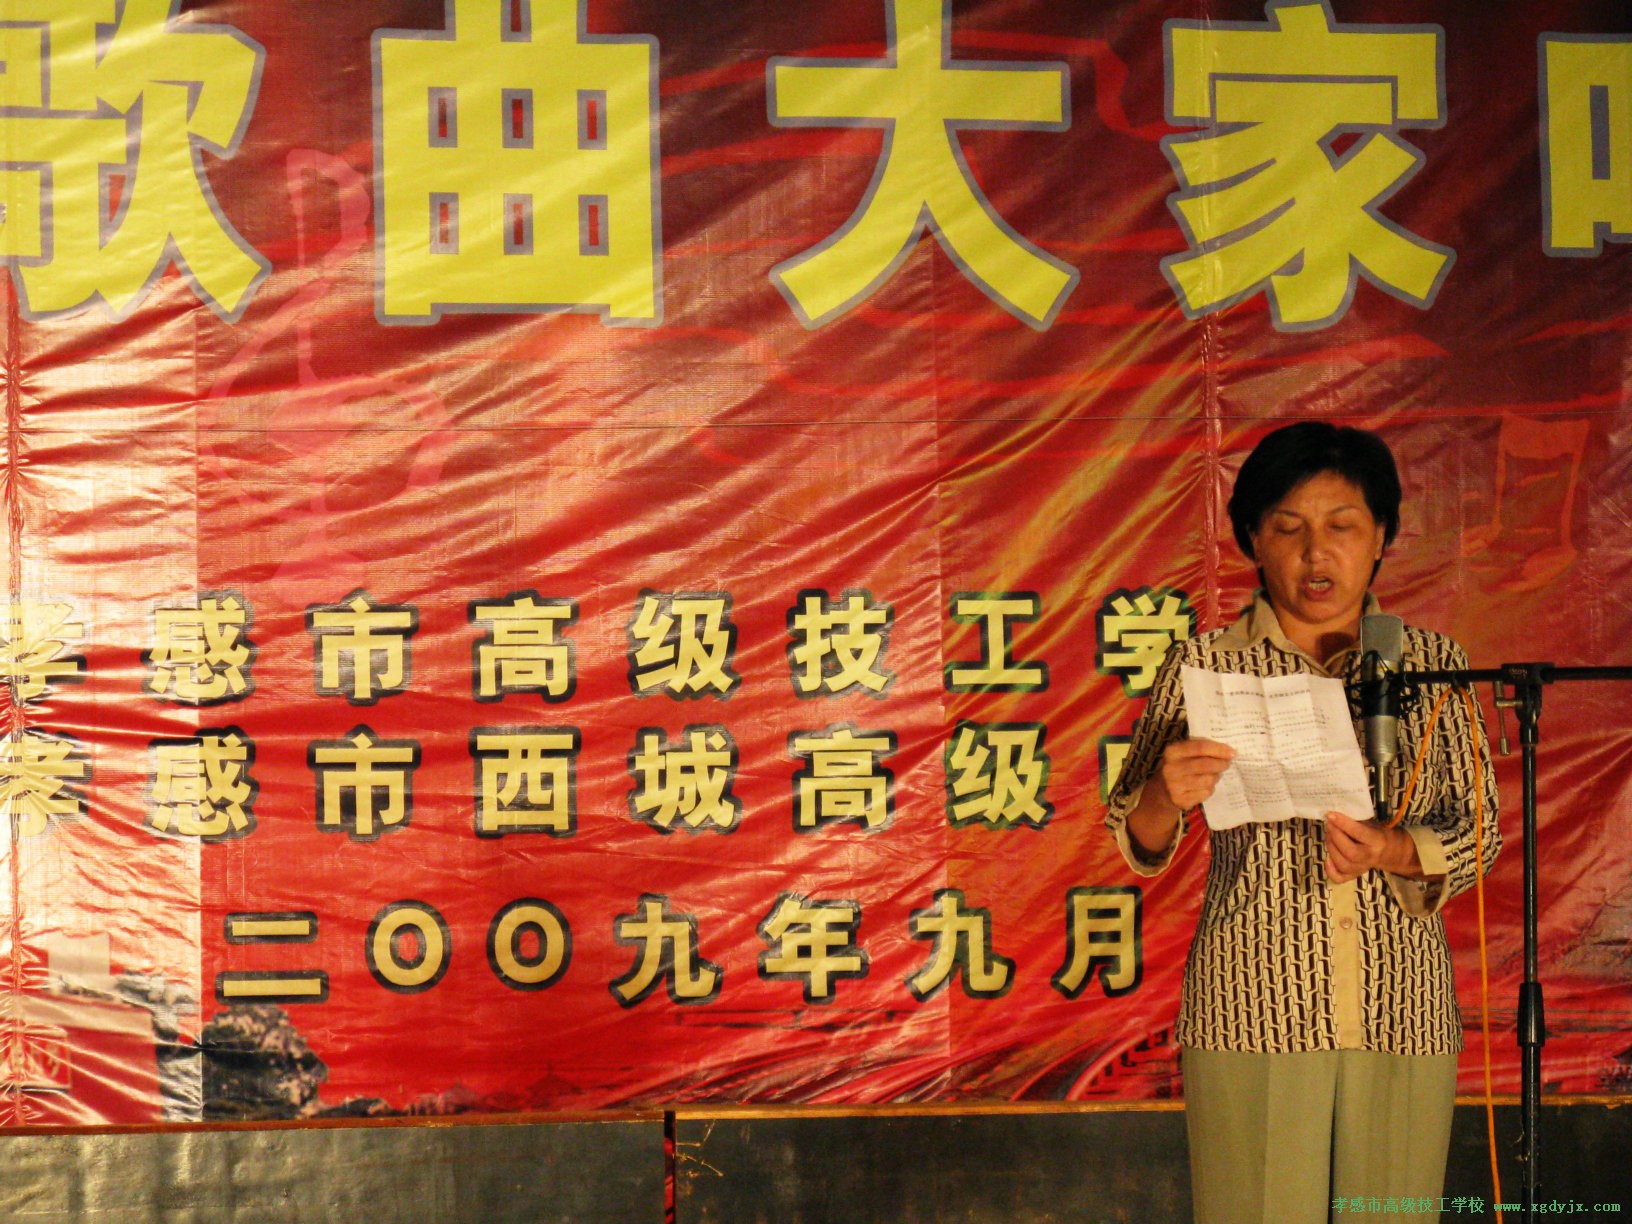 歌曲大家唱
孝感市高级技工学
孝感市西城高级中
二〇〇九年九月
孝感市高级技工学校 www.xgdyjx.com